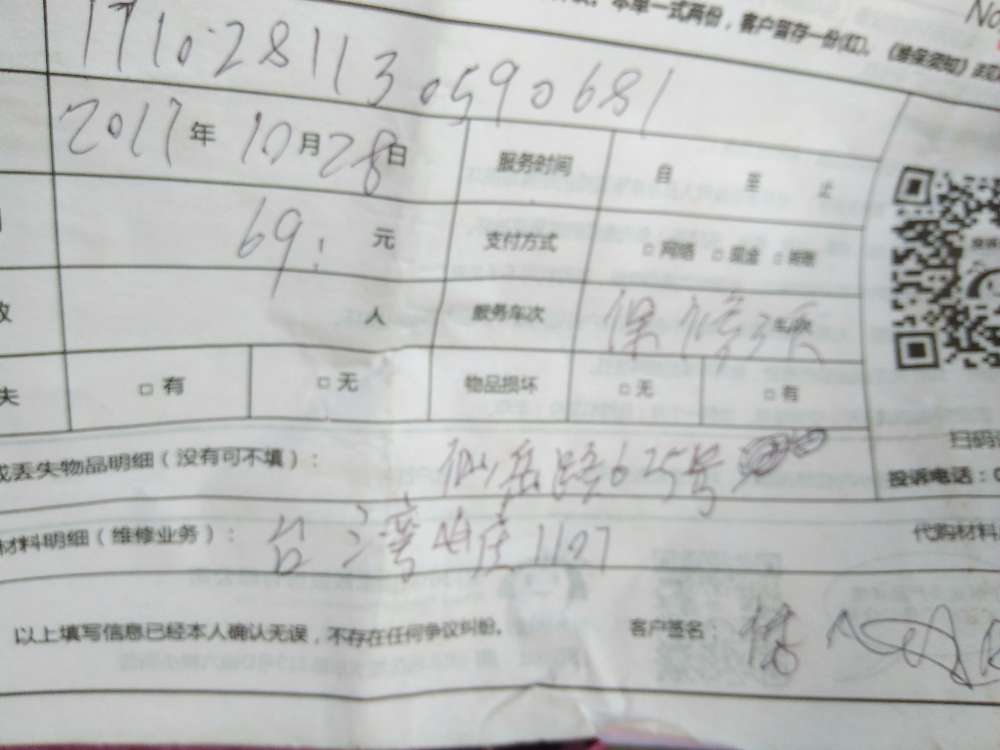 本单一式两份，客户留存一份(红)。《维保须知》
No
1710281130590681
2017年10月28日 服务时间 自 至 止
69. 元 支付方式 □ 网络 □ 现金 □
人 服务车次 保修 车次
失 □ 有 □ 无 物品损坏 □ 无 □ 有
或丢失物品明细（没有可不填）： 仙岳路625号
扫码
投诉电话：0
材料明细（维修业务）： 台湾山庄1107 代购材料
以上填写信息已经本人确认无误，不存在任何争议纠纷。 客户签名：